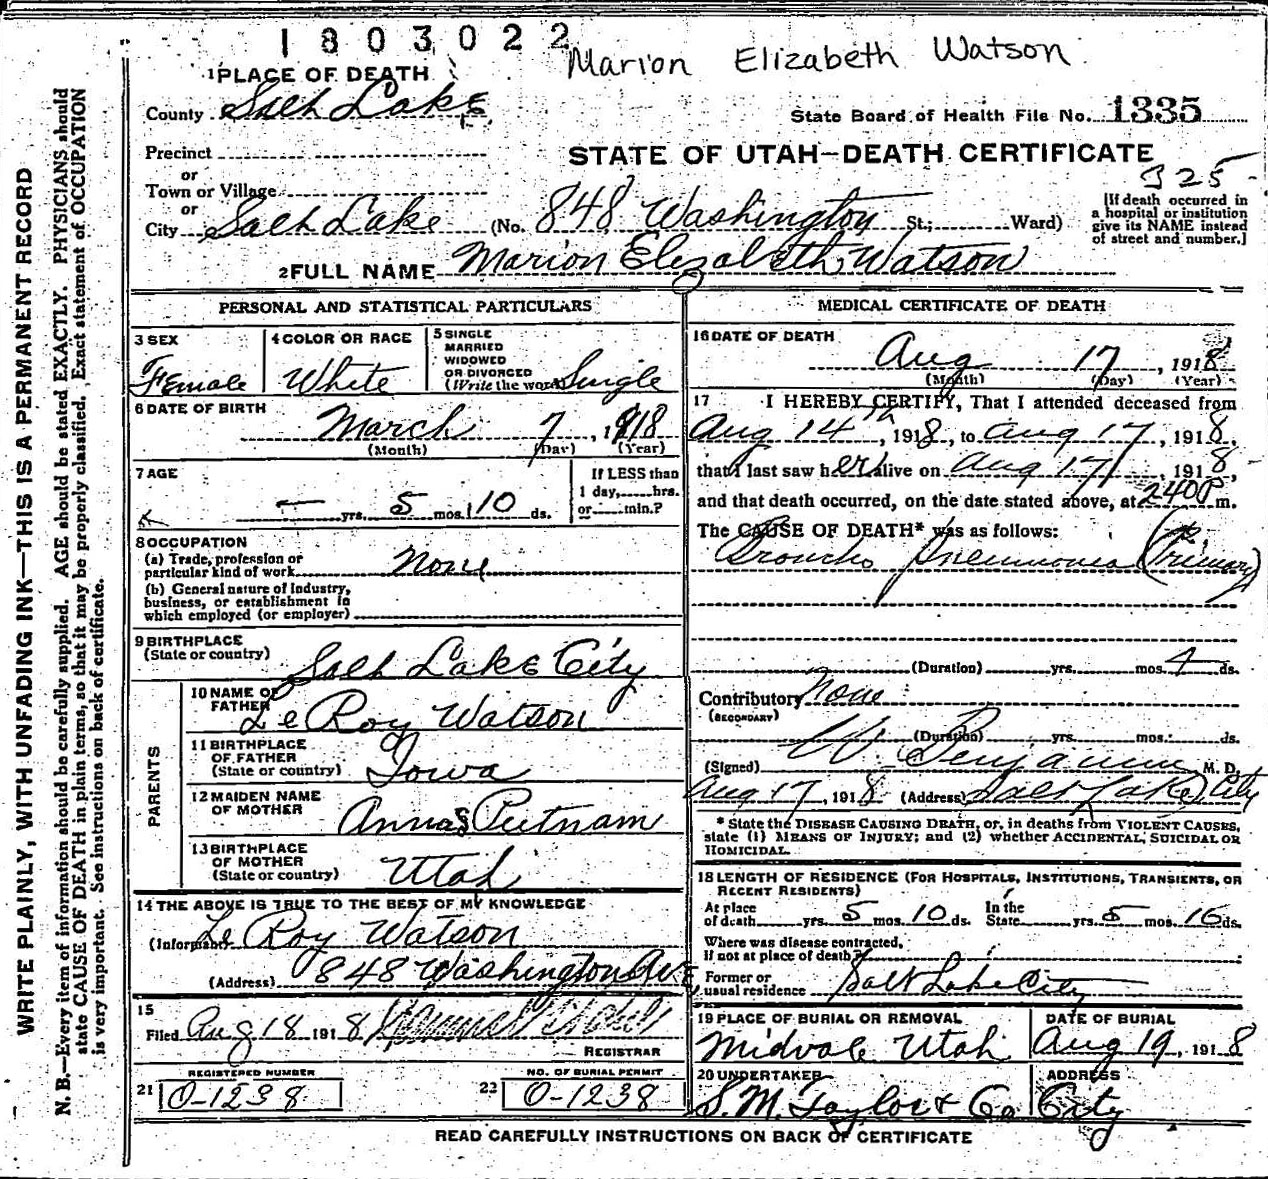 1803022
Marion Elizabeth Watson
1 PLACE OF DEATH
County Salt Lake
State Board of Health File No. 1335
Precinct
STATE OF UTAH—DEATH CERTIFICATE
or
325
Town or Village
or
City Salt Lake (No. 848 Washington St.; Ward)
[If death occurred in
a hospital or institution
give its NAME instead
of street and number.]
2 FULL NAME Marion Elizabeth Watson
PERSONAL AND STATISTICAL PARTICULARS
3 SEX
Female
4 COLOR OR RACE
White
5 SINGLE
MARRIED
WIDOWED
OR DIVORCED
(Write the word) Single
6 DATE OF BIRTH
March 7, 1918
(Month) (Day) (Year)
7 AGE
— yrs. 5 mos. 10 ds.
If LESS than
1 day,......hrs.
or......min.?
8 OCCUPATION
(a) Trade, profession or
particular kind of work None
(b) General nature of industry,
business, or establishment in
which employed (or employer)
9 BIRTHPLACE
(State or country) Salt Lake City
PARENTS
10 NAME OF
FATHER Le Roy Watson
11 BIRTHPLACE
OF FATHER
(State or country) Iowa
12 MAIDEN NAME
OF MOTHER Anna Putnam
13 BIRTHPLACE
OF MOTHER
(State or country) Utah
14 THE ABOVE IS TRUE TO THE BEST OF MY KNOWLEDGE
(Informant) Le Roy Watson
(Address) 848 Washington Ave
15
Filed Aug 18 1918
REGISTRAR
REGISTERED NUMBER
21 O-1238
NO. OF BURIAL PERMIT
O-1238
MEDICAL CERTIFICATE OF DEATH
16 DATE OF DEATH
Aug 17, 1918
(Month) (Day) (Year)
17 I HEREBY CERTIFY, That I attended deceased from
Aug 14th, 1918, to Aug 17, 1918,
that I last saw her alive on Aug 17, 1918,
and that death occurred, on the date stated above, at m.
The CAUSE OF DEATH* was as follows:
Broncho Pneumonia (Primary)
(Duration) yrs. mos. ds.
Contributory None
(SECONDARY)
(Duration) yrs. mos. ds.
(Signed) W Benjamin M. D.
Aug 17, 1918 (Address) Salt Lake City
* State the DISEASE CAUSING DEATH, or, in deaths from VIOLENT CAUSES,
state (1) MEANS OF INJURY; and (2) whether ACCIDENTAL, SUICIDAL OR
HOMICIDAL.
18 LENGTH OF RESIDENCE (FOR HOSPITALS, INSTITUTIONS, TRANSIENTS, OR
RECENT RESIDENTS)
At place
of death yrs. 5 mos. 10 ds.
In the
State yrs. 5 mos. 10 ds.
Where was disease contracted,
if not at place of death?
Former or
usual residence Salt Lake City
19 PLACE OF BURIAL OR REMOVAL
Midvale Utah
DATE OF BURIAL
Aug 19, 1918
20 UNDERTAKER
S. M. Taylor & Co
ADDRESS
City
READ CAREFULLY INSTRUCTIONS ON BACK OF CERTIFICATE
WRITE PLAINLY, WITH UNFADING INK—THIS IS A PERMANENT RECORD
N. B.—Every item of information should be carefully supplied. AGE should be stated EXACTLY. PHYSICIANS should
state CAUSE OF DEATH in plain terms, so that it may be properly classified. Exact statement of OCCUPATION
is very important. See instructions on back of certificate.